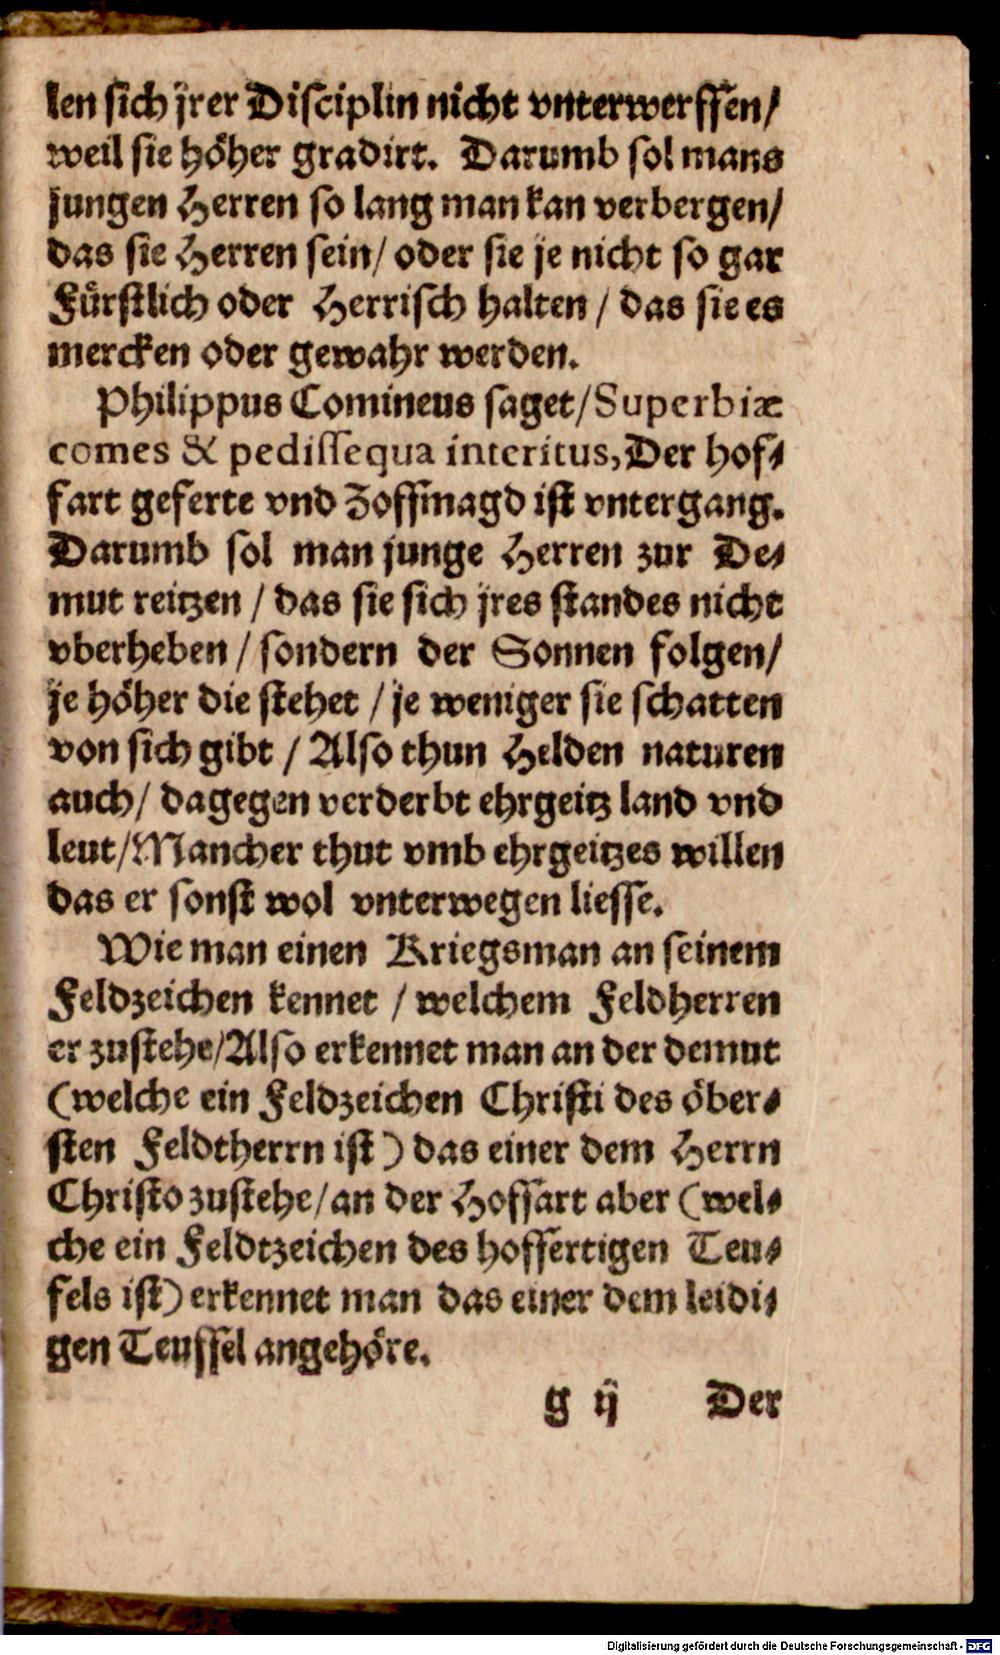 len sich jrer Disciplin nicht vnterwerffen/
weil sie höher gradirt. Darumb sol mans
jungen Herren so lang man kan verbergen/
das sie Herren sein/ oder sie je nicht so gar
Fürstlich oder Herrisch halten / das sie es
mercken oder gewahr werden.
Philippus Comineus saget/Superbiæ
comes & pedissequa interitus, Der hof-
fart geferte vnd Zoffmagd ist vntergang.
Darumb sol man junge Herren zur De-
mut reitzen / das sie sich jres standes nicht
vberheben / sondern der Sonnen folgen/
je höher die stehet / je weniger sie schatten
von sich gibt / Also thun Helden naturen
auch/ dagegen verderbt ehrgeitz land vnd
leut/Mancher thut vmb ehrgeitzes willen
das er sonst wol vnterwegen liesse.
Wie man einen Kriegsman an seinem
Feldzeichen kennet / welchem Feldherren
er zustehe/Also erkennet man an der demut
(welche ein Feldzeichen Christi des öber-
sten Feldtherrn ist) das einer dem Herrn
Christo zustehe/an der Hoffart aber (wel-
che ein Feldtzeichen des hoffertigen Teu-
fels ist) erkennet man das einer dem leidi-
gen Teuffel angehöre.
g ij Der
Digitalisierung gefördert durch die Deutsche Forschungsgemeinschaft - DFG